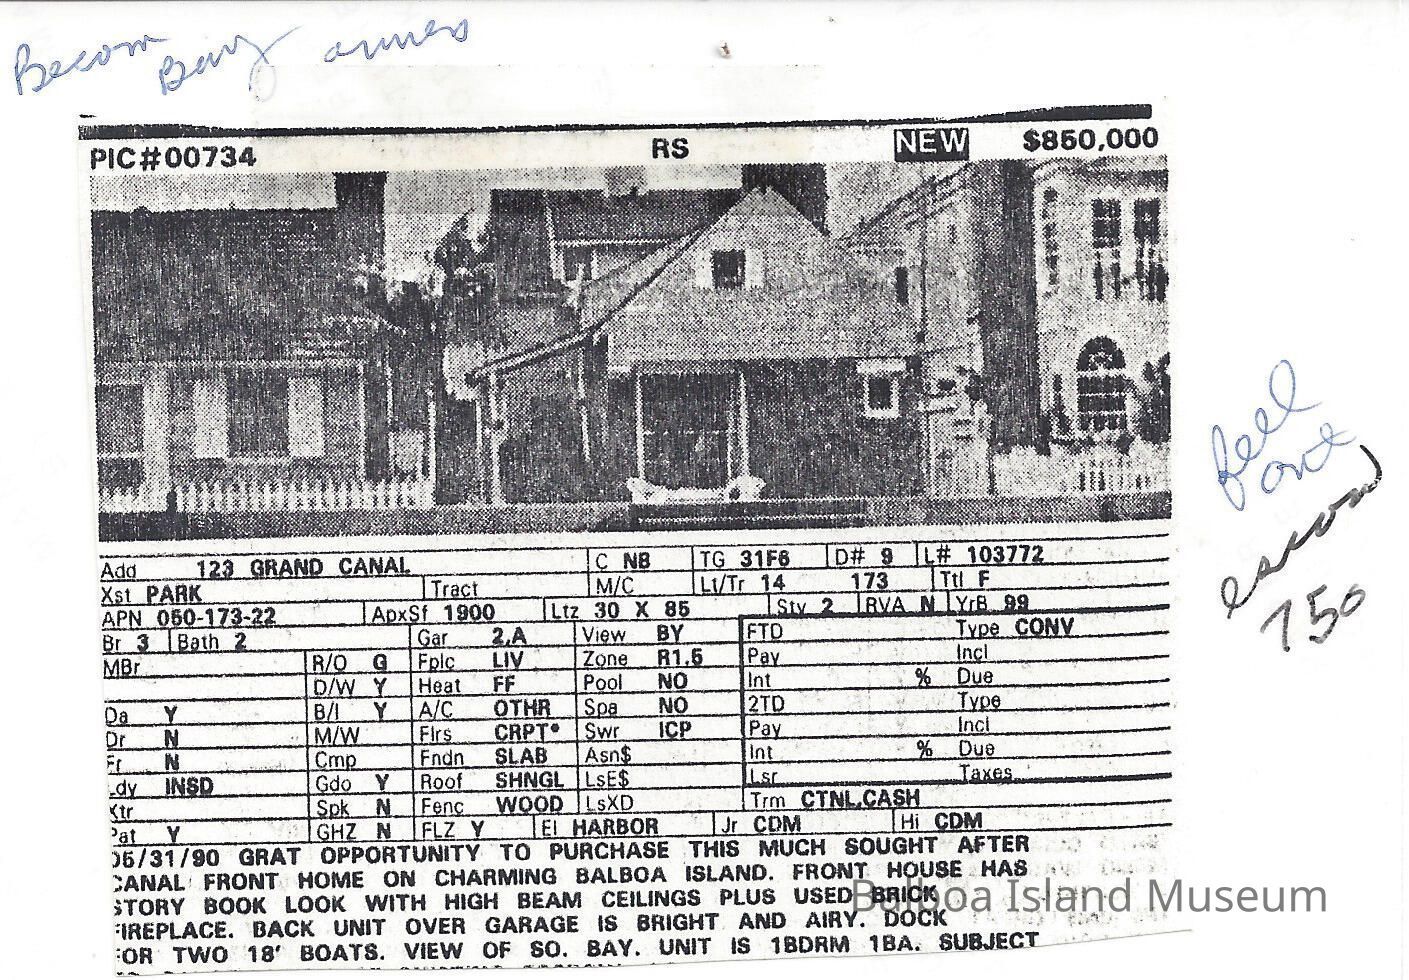 Becom Bay owners
PIC#00734 RS NEW $850,000
Add 123 GRAND CANAL C NB TG 31F6 D# 9 L# 103772
Xst PARK Tract M/C Lt/Tr 14 173 Ttl F
APN 050-173-22 ApxSf 1900 Ltz 30 X 85 Sty 2 RVA N YrB 99
Br 3 Bath 2 Gar 2,A View BY FTD Type CONV
MBr R/O G Fplc LIV Zone R1.5 Pay Incl
D/W Y Heat FF Pool NO Int % Due
Da Y B/I Y A/C OTHR Spa NO 2TD Type
Dr N M/W Flrs CRPT* Swr ICP Pay Incl
Fr N Cmp Fndn SLAB Asn$ Int % Due
Ldy INSD Gdo Y Roof SHNGL LsE$ Lsr Taxes
Xtr Spk N Fenc WOOD LsXD Trm CTNL,CASH
Pat Y GHZ N FLZ Y El HARBOR Jr CDM Hi CDM
05/31/90 GRAT OPPORTUNITY TO PURCHASE THIS MUCH SOUGHT AFTER
CANAL FRONT HOME ON CHARMING BALBOA ISLAND. FRONT HOUSE HAS
STORY BOOK LOOK WITH HIGH BEAM CEILINGS PLUS USED BRICK
FIREPLACE. BACK UNIT OVER GARAGE IS BRIGHT AND AIRY. DOCK
FOR TWO 18' BOATS. VIEW OF SO. BAY. UNIT IS 1BDRM 1BA. SUBJECT
Fell
out
escrow
750
Balboa Island Museum